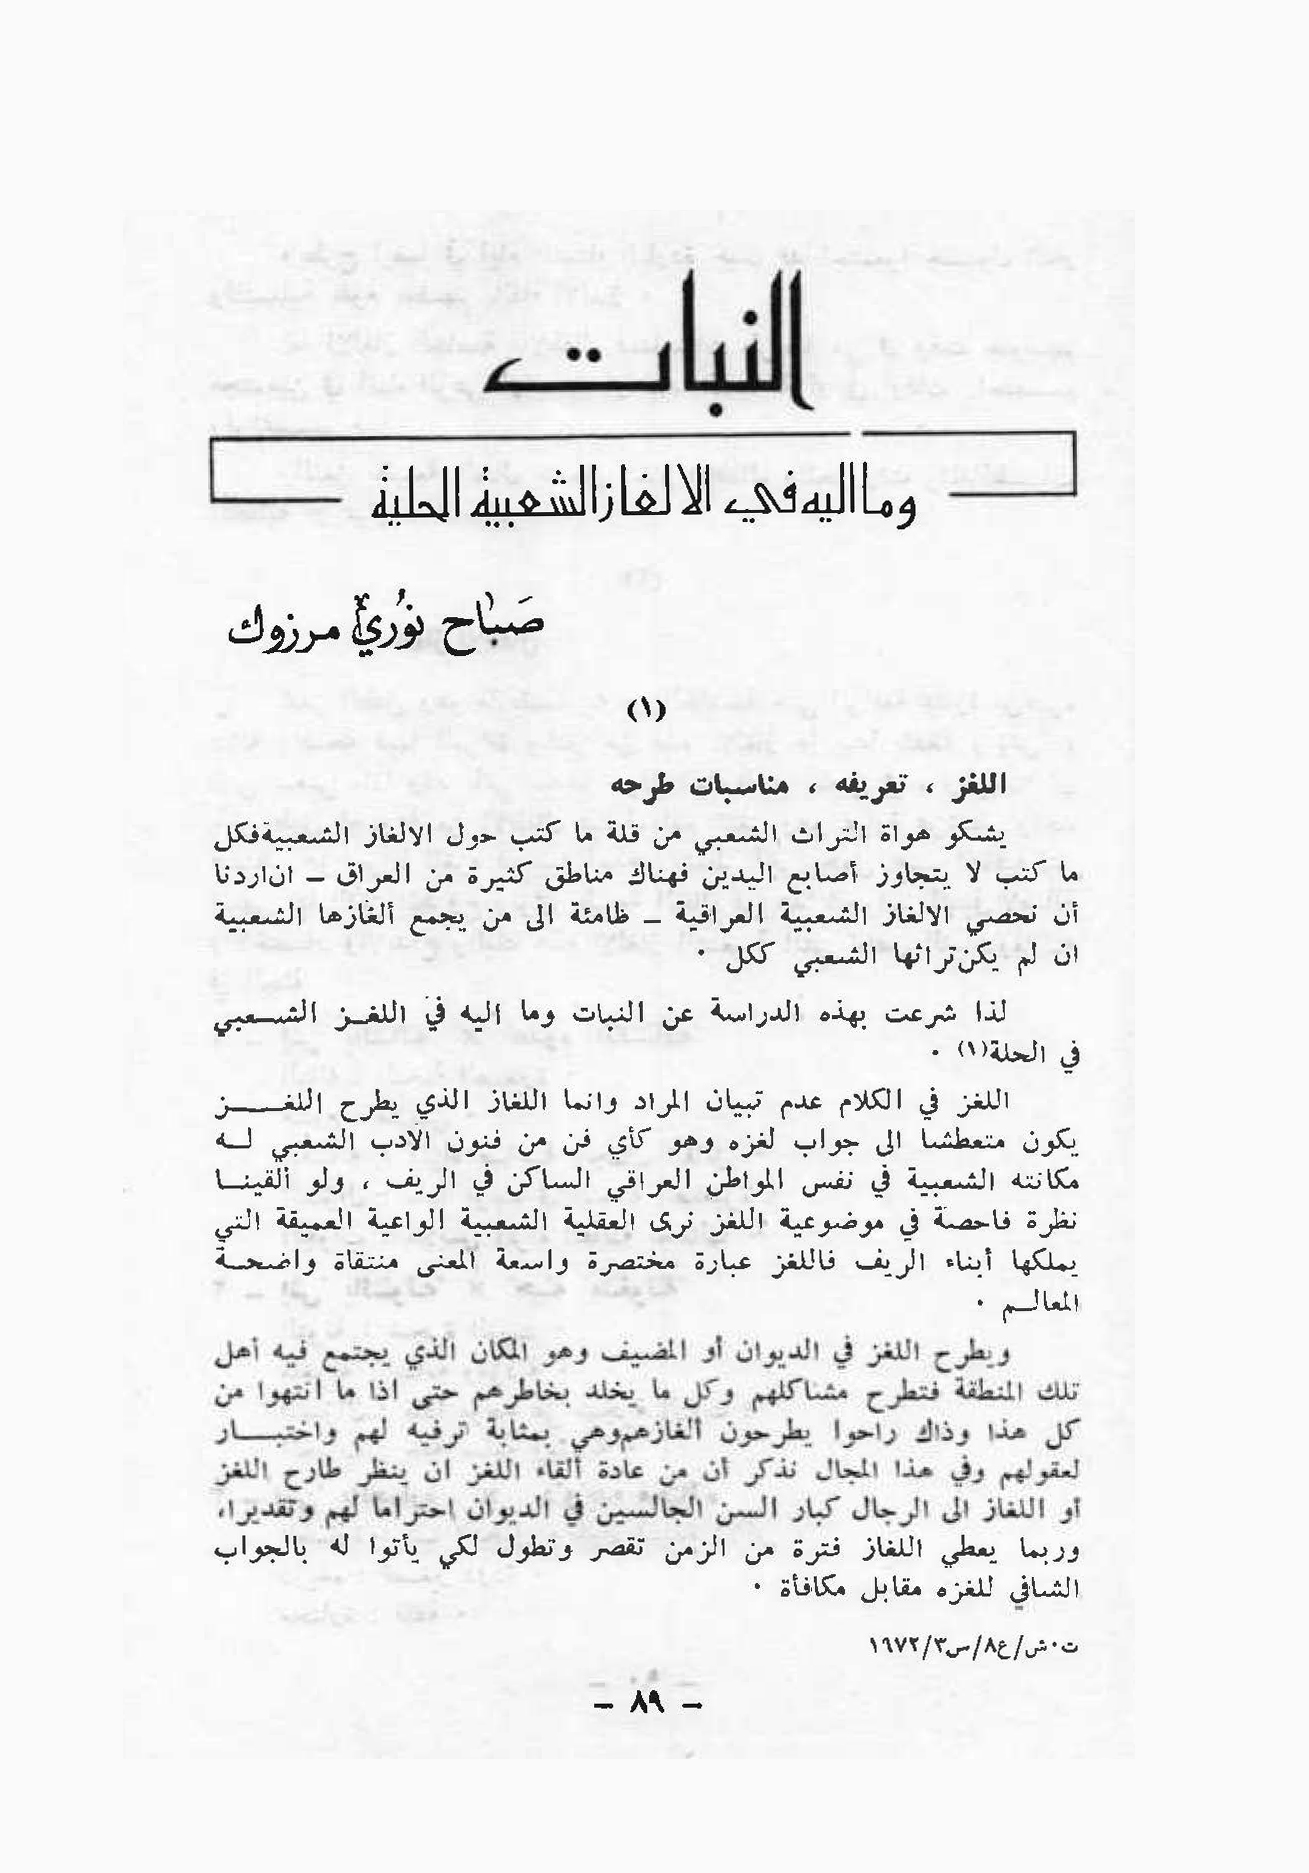 النبات
وما اليه في الالغاز الشعبية الحلية
صباح نوري مرزوك
(١)
اللغز ، تعريفه ، مناسبات طرحه
يشكو هواة التراث الشعبي من قلة ما كتب حول الالغاز الشعبية فكل
ما كتب لا يتجاوز أصابع اليدين فهناك مناطق كثيرة من العراق – ان اردنا
أن نحصي الالغاز الشعبية العراقية – ظامئة الى من يجمع ألغازها الشعبية
ان لم يكن تراثها الشعبي ككل ٠
لذا شرعت بهذه الدراسة عن النبات وما اليه في اللغـز الشـعبي
في الحلة(١) ٠
اللغز في الكلام عدم تبيان المراد وانما اللغاز الذي يطرح اللغـــز
يكون متعطشا الى جواب لغزه وهو كأي فن من فنون الادب الشعبي لـه
مكانته الشعبية في نفس المواطن العراقي الساكن في الريف ، ولو ألقينـا
نظرة فاحصة في موضوعية اللغز نرى العقلية الشعبية الواعية العميقة التي
يملكها أبناء الريف فاللغز عبارة مختصرة واسعة المعنى منتقاة واضحـة
المعالـم ٠
ويطرح اللغز في الديوان أو المضيف وهو المكان الذي يجتمع فيه أهل
تلك المنطقة فتطرح مشاكلهم وكل ما يخلد بخاطرهم حتى اذا ما انتهوا من
كل هذا وذاك راحوا يطرحون ألغازهم وهي بمثابة ترفيه لهم واختبـــار
لعقولهم وفي هذا المجال نذكر أن من عادة ألقاء اللغز ان ينظر طارح اللغز
أو اللغاز الى الرجال كبار السن الجالسين في الديوان احتراما لهم وتقديرا،
وربما يعطي اللغاز فترة من الزمن تقصر وتطول لكي يأتوا له بالجواب
الشافي للغزه مقابل مكافأة ٠
ت٠ش/ع٨/س٣/١٩٧٢
– ٨٩ –